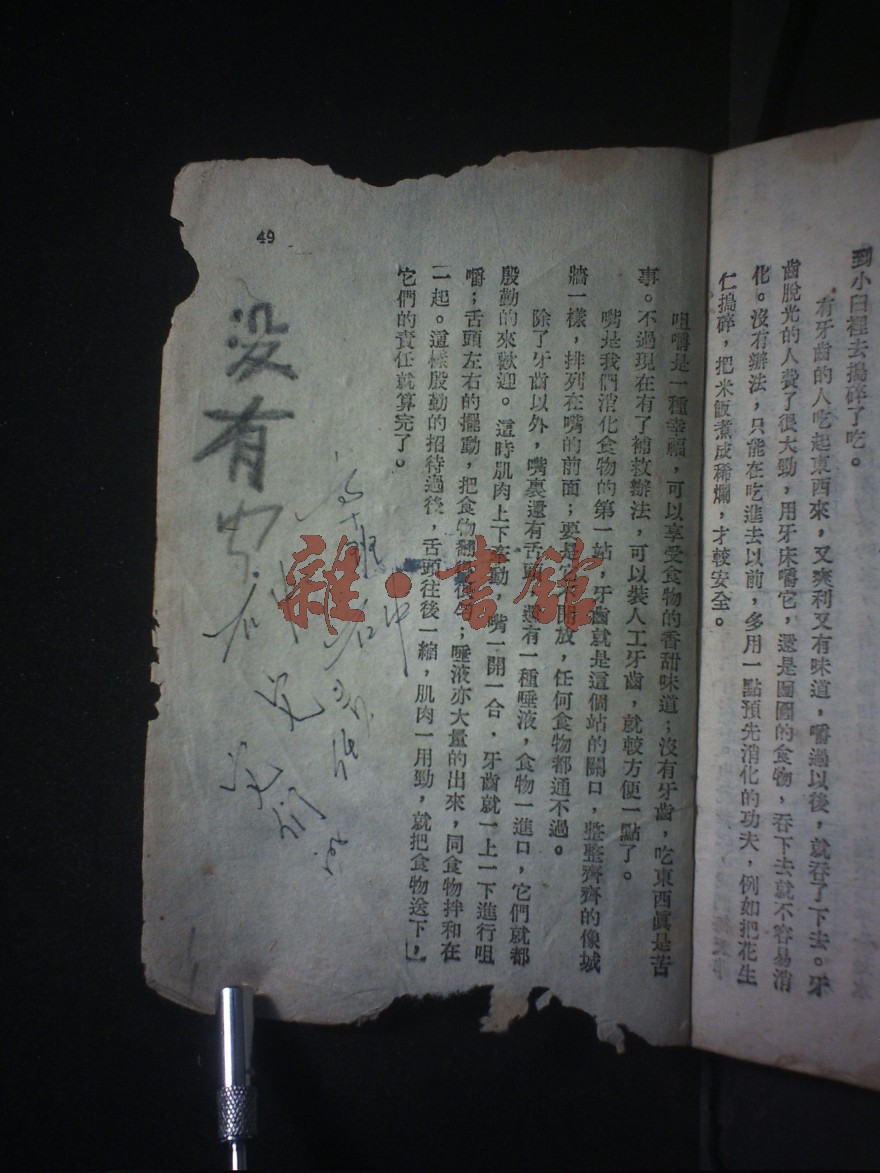 到小臼裡去搗碎了吃。
有牙齒的人吃起東西來，又爽利又有味道，嚼過以後，就吞了下去。牙
齒脫光的人費了很大勁，用牙床嚼它，還是圇圇的食物，吞下去就不容易消
化。沒有辦法，只能在吃進去以前，多用一點預先消化的功夫，例如把花生
仁搗碎，把米飯煮成稀爛，才較安全。
咀嚼是一種幸福，可以享受食物的香甜味道；沒有牙齒，吃東西眞是苦
事。不過現在有了補救辦法，可以裝人工牙齒，就較方便一點了。
嘴是我們消化食物的第一站，牙齒就是這個站的關口，整整齊齊的像城
牆一樣，排列在嘴的前面；要是它不開放，任何食物都通不過。
除了牙齒以外，嘴裏還有舌頭，還有一種唾液，食物一進口，它們就都
殷勤的來歡迎。這時肌肉上下牽動，嘴一開一合，牙齒就一上一下進行咀
嚼；舌頭左右的擺動，把食物翻；唾液亦大量的出來，同食物拌和在
一起。這樣殷勤的招待過後，舌頭往後一縮，肌肉一用勁，就把食物送下，
它們的責任就算完了。
49
没有
雜·書館